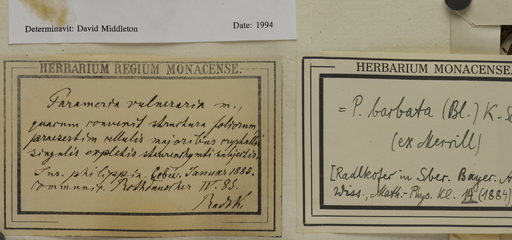 Determinavit: David Middleton Date: 1994
HERBARIUM REGIUM MONACENSE.
Parameria vulneraria m.,
quacum convenit structura foliorum
praesertim cellulis majoribus crystallis
singulis expletis sclerenchymati subjectis.
Ins. philippin. Cebu. Januar 1885.
communic. Rothdauscher IV. 85.
Radlk.
HERBARIUM MONACENSE.
= P. barbata (Bl.) K. Sc
(ex Merrill)
[Radlkofer in Sber. Bayer. A
Wiss., Math.-Phys. Kl. 14 (1884)